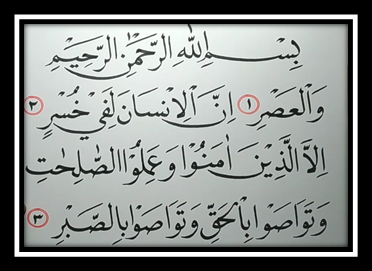 بِسْمِ اللّٰهِ الرَّحْمٰنِ الرَّحِيْمِ
وَالْعَصْرِ ١ اِنَّ الْاِنْسَانَ لَفِيْ خُسْرٍ ٢
اِلَّا الَّذِيْنَ اٰمَنُوْا وَعَمِلُوا الصّٰلِحٰتِ
وَتَوَاصَوْا بِالْحَقِّ وَتَوَاصَوْا بِالصَّبْرِ ٣